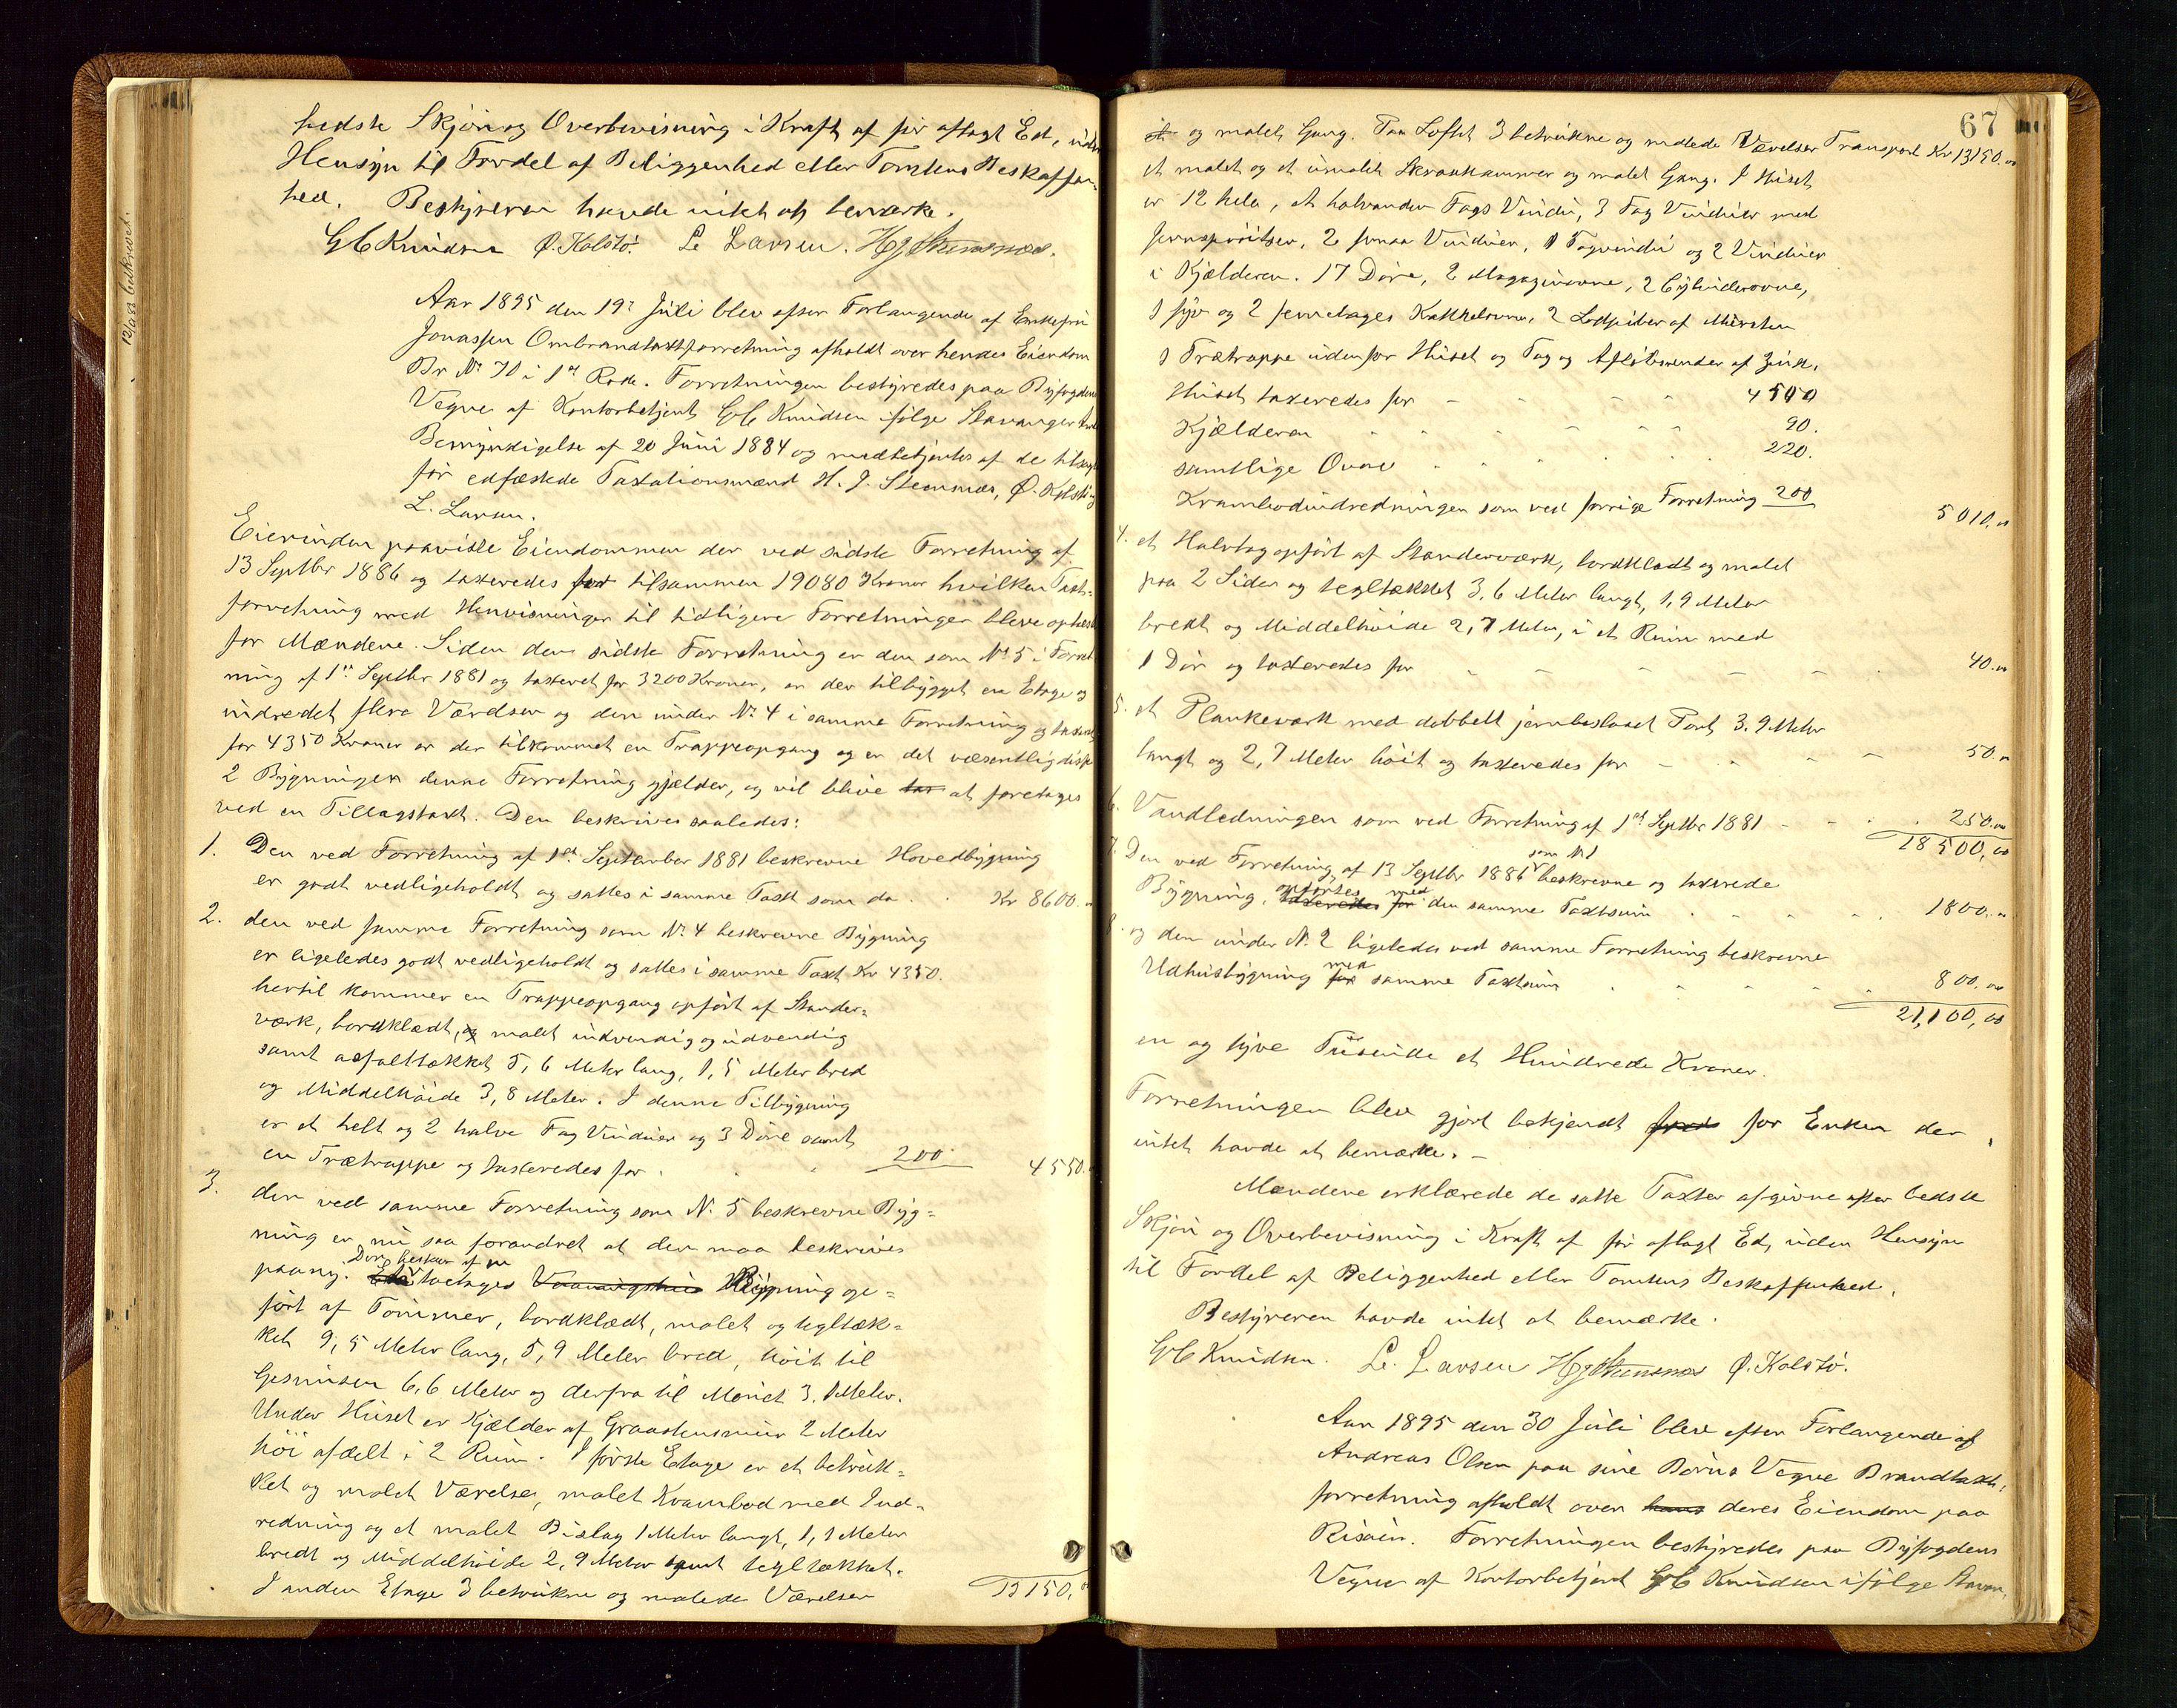 12/9 88 beskrevet.
bedste Skjøn og Overbevisning i Kraft af før aflagt Ed, uden
Hensyn til Fordel af Beliggenhed eller Tomtens Beskaffen-
hed. Bestyreren havde intet at bemærke.
Knudsen Ø. Kolstø. L. Larsen. H J Stumsnæs.
Aar 1895 den 19de Juli blev efter Forlangende af Enkefru
Jonassen Ombrandtaxtforretning afholdt over hendes Eiendom
Br. No 70 i 1st Rode. Forretningen bestyredes paa Byfogdens
Vegne af Kontorbetjent Knudsen ifølge Stavanger
Bemyndigelse af 20 Juni 1884 og medbetjentes af de
før edfæstede Taxationsmænd H. J. Stumsnæs, Ø. Kolstø og
L. Larsen.
Eierinden paaviste Eiendommen der ved sidste Forretning af
13 Septbr 1886 og taxeredes for tilsammen 19080 Kroner hvilken Taxt-
forretning med Henvisninger til tidligere Forretninger bleve oplæst
for Mændene. Siden den sidste Forretning er den som No 5 i Forret
ning af 1ste Septbr 1881 og taxeret for 3200 Kroner, er der tilbygget en Etage og
indredet flere Værelser og den under No. 4 i samme Forretning og taxeret
for 4350 Kroner er der tilkommet en Trappeopgang og er det væsentlig disse
2 Bygninger denne Forretning gjælder, og vil blive at foretages
ved en Tillægstaxt. Den beskrives saaledes:
1. Den ved Forretning af 1st September 1881 beskrevne Hovedbygning
er godt vedligeholdt og sattes i samme Taxt som da . . Kr 8600.
2. den ved samme Forretning som No. 4 beskrevne Bygning
er ligeledes godt vedligeholdt og sattes i samme Taxt Kr 4350.
hertil kommer en Trappeopgang opført af Stander=
værk, bordklædt, og malet indvendig og udvendig
samt asfalttækket 5,6 Meter lang, 1,5 Meter bred
og Middelhøide 3,8 Meter. I denne Tilbygning
er et helt og 2 halve Fag Vinduer og 3 Døre samt
en Trætrappe og taxeredes for . . . 200 4550.
3. den ved samme Forretning som No. 5 beskrevne Byg=
ning er nu saa forandret at den maa beskrives
Den bestaar af en
paany. toetages Vaaningshus Bygning op=
ført af Tømmer, bordklædt, malet og tegltæk=
ket 9,5 Meter lang, 5,9 Meter bred, høit til
Gesimsen 6,6 Meter og derfra til Mønet 3,1 Meter.
Under Huset er Kjælder af Graastensmur 2 Meter
høi afdelt i 2 Rum. I første Etage er et betruk=
ket og malet Værelse, malet Krambod med Ind-
redning og et malet Bislag 1 Meter langt, 1,1 Meter
bredt og Middelhøide 2,9 Meter samt tegltækket.
I anden Etage 3 betrukne og malede Værelser 13150,
67
og malet Gang. Paa Loftet 3 betrukne og malede Værelser Transport Kr 13150.00
et malet og et umalet Skraakammer og malet Gang. I Huset
er 12 hele, et halvandet Fags Vindu, 3 Fag Vinduer med
Jernsprosser, 2 smaa Vinduer, 1 Tagvindu og 2 Vinduer
i Kjælderen. 17 Døre, 2 Magazinovne, 2 Cylinderovne,
1 fyr og 2 femetages Kakkelovne, 2 Lodpiber af Mursten
1 Trætrappe udenfor Huset og Tag og Afløbsrender af Zink.
Huset taxeredes for - - - - 4500
Kjælderen - - - - - 90.
samtlige Ovne - - - - - 220.
Krambodindredningen som ved forrige Forretning 200 5010.00
4. et Halvtag opført af Standerværk, bordklædt og malet
paa 2 Sider og tegltækket 3,6 Meter langt, 1,9 Meter
bredt og Middelhøide 2,7 Meter, i et Rum med
1 Dør og taxeredes for - - - - - 40.00
5. et Plankeværk med dobbelt jernbeslaaet Port 3.9 Meter
langt og 2,7 Meter høit og taxeredes for - - - - 50.00
6. Vandledningen som ved Forretning af 1st Septbr 1881 - - . 250.00
18500,00
som No 1
7. Den ved Forretning af 13 Septbr 1886 beskrevne og taxerede
opførtes med
Bygning, taxeredes for den samme Taxtsum . . . . 1800.00
8. og den under No. 2 ligeledes ved samme Forretning beskrevne
med
Udhusbygning for samme Taxtsum . . . . . 800.00
21,100,00
en og tyve Tusinde et Hundrede Kroner.
Forretningen blev gjort bekjendt for Enken der
intet havde at bemærke. -
Mændene erklærede de satte Taxter afgivne efter bedste
Skjøn og Overbevisning i Kraft af før aflagt Ed, uden Hensyn
til Fordel af Beliggenhed eller Tomtens Beskaffenhed.
Bestyreren havde intet at bemærke.
Knudsen. L. Larsen H J Stumsnæs Ø. Kolstø.
Aar 1895 den 30 Juli blev efter Forlangende af
Andreas Olsen paa sine Børns Vegne Brandtaxt-
forretning afholdt over hans deres Eiendom paa
Risøen. Forretningen bestyredes paa Byfogdens
Vegne af Kontorbetjent Knudsen ifølge Stavan-